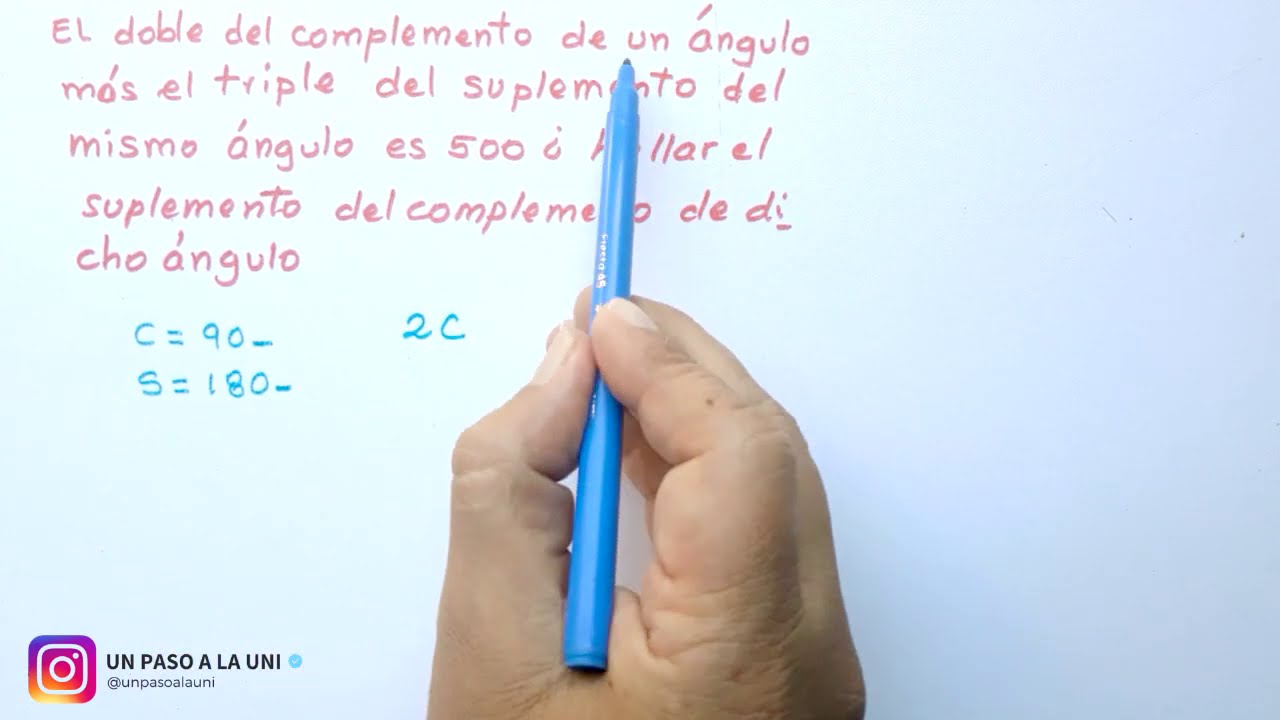 EL doble del complemento de un ángulo
más el triple del suplemento del
mismo ángulo es 500 ¿ llar el
suplemento del complemento de di
cho ángulo
C = 90-
2C
S = 180-
UN PASO A LA UNI
@unpasoalauni